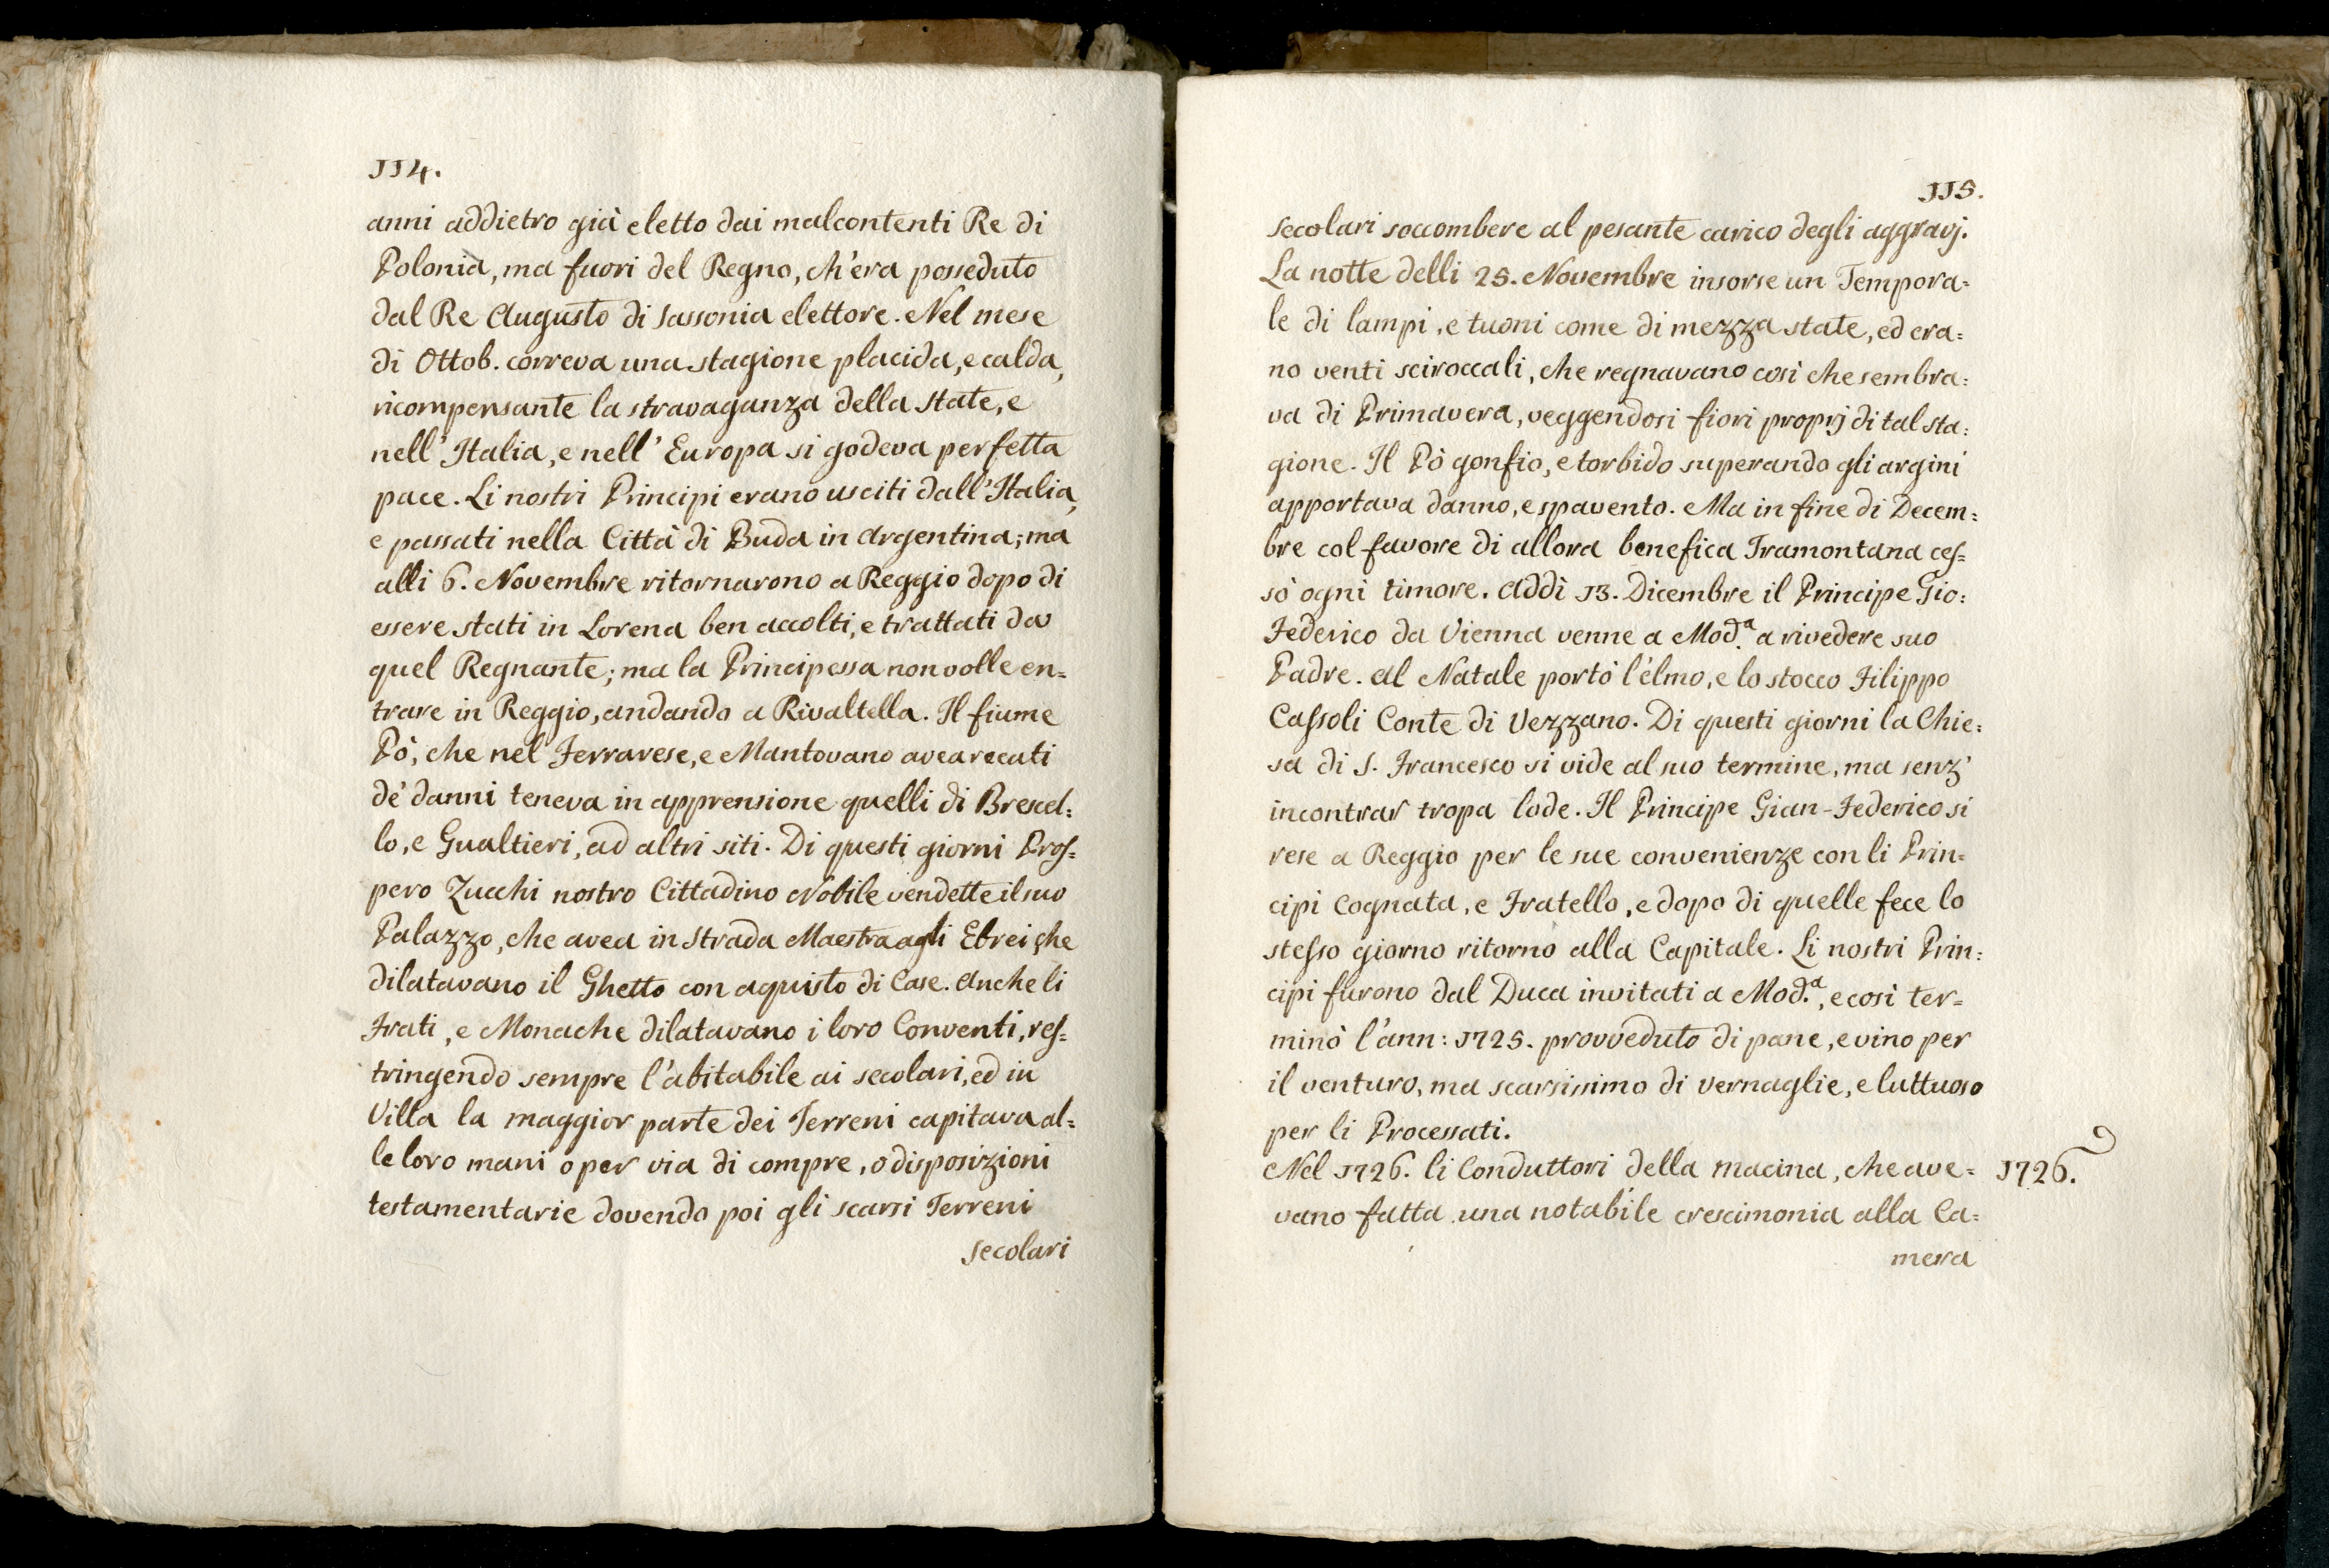 114.
anni addietro già eletto dai malcontenti Re di
Polonia, ma fuori del Regno, ch'era posseduto
dal Re Augusto di Sassonia elettore. Nel mese
di Ottob. correva una stagione placida, e calda,
ricompensante la stravaganza della state, e
nell' Italia, e nell' Europa si godeva perfetta
pace. Li nostri Principi erano usciti dall' Italia,
e passati nella Città di Buda in Argentina; ma
alli 6. Novembre ritornarono a Reggio dopo di
essere stati in Lorena ben accolti, e trattati da
quel Regnante; ma la Principessa non volle en=
trare in Reggio, andando a Rivaltella. Il fiume
Pò, che nel Ferrarese, e Mantovano avea recati
de' danni teneva in apprensione quelli di Bresel:
lo, e Gualtieri, ad altri siti. Di questi giorni Pros=
pero Zucchi nostro Cittadino Nobile vendette il suo
Palazzo, che avea in Strada Maestra agli Ebrei che
dilatavano il Ghetto con aquisto di Case. Anche li
Frati, e Monache dilatavano i loro Conventi, res=
tringendo sempre l'abitabile ai secolari, ed in
Villa la maggior parte dei Terreni capitava al=
le loro mani o per via di compre, o disposizioni
testamentarie dovendo poi gli scarsi Terreni
secolari
115.
secolari soccombere al pesante carico degli aggravj.
La notte delli 25. Novembre insorse un Tempora=
le di lampi, e tuoni come di mezza state, ed era=
no venti sciroccali, che regnavano così che sembra=
va di Primavera, veggendosi fiori proprj di tal sta=
gione. Il Pò gonfio, e torbido superando gli argini
apportava danno, e spavento. Ma in fine di Decem=
bre col favore di allora benefica Tramontana ces=
sò ogni timore. Addì 13. Dicembre il Principe Gio:
Federico da Vienna venne a Mod.a a rivedere suo
Padre. Al Natale portò l'élmo, e lo stocco Filippo
Cassoli Conte di Vezzano. Di questi giorni la Chie=
sa di S. Francesco si vide al suo termine, ma senz'
incontrar tropa lode. Il Principe Gian-Federico si
rese a Reggio per le sue convenienze con li Prin=
cipi Cognata, e Fratello, e dopo di quelle fece lo
stesso giorno ritorno alla Capitale. Li nostri Prin=
cipi furono dal Duca invitati a Mod.a, e così ter=
minò l'ann: 1725. provveduto di pane, e vino per
il venturo, ma scarsissimo di vernaglie, e luttuoso
per li Processati.
Nel 1726. li Conduttori della macina, che ave= 1726.
vano fatta una notabile crescimonia alla Ca=
mera